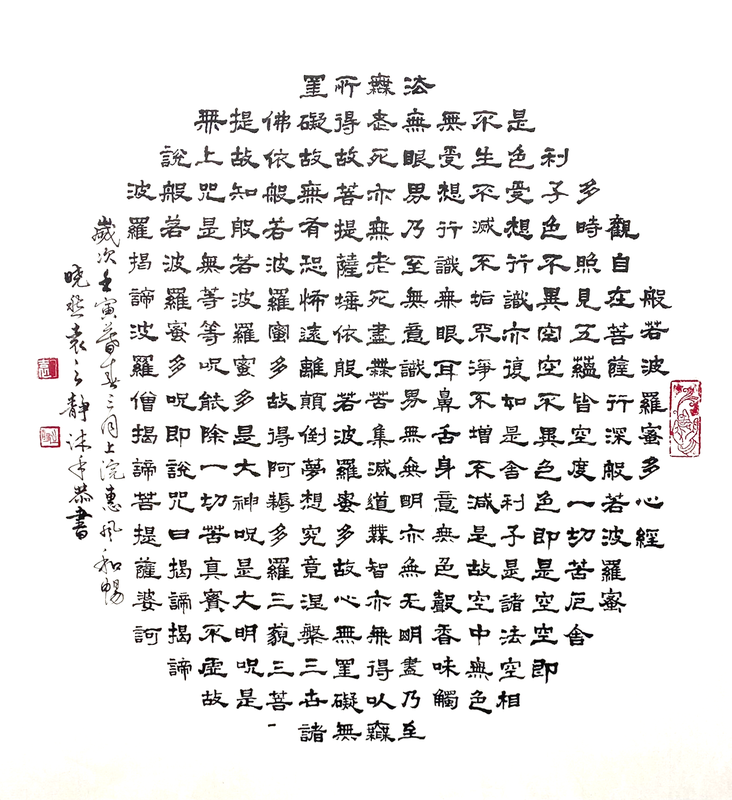 般若波羅蜜多心經
觀自在菩薩行深般若波羅蜜
多時照見五蘊皆空度一切苦厄舍
利子色不異空空不異色色即是空空即
是色受想行識亦復如是舍利子是諸法空相
不生不滅不垢不淨不增不減是故空中無色
無受想行識無眼耳鼻舌身意無色聲香味觸
法無眼界乃至無意識界無無明亦無无明盡乃至
無老死亦無老死盡無苦集滅道無智亦無得以無
所得故菩提薩埵依般若波羅蜜多故心無罣礙無
罣礙故無有恐怖遠離顛倒夢想究竟涅槃三世諸
佛依般若波羅蜜多故得阿耨多羅三藐三菩
提故知般若波羅蜜多是大神咒是大明咒是
無上咒是無等等咒能除一切苦真實不虛故
說般若波羅蜜多咒即說咒曰揭諦揭諦
波羅揭諦波羅僧揭諦菩提薩婆訶
歲次壬寅暮春三月上浣惠風和暢
曉袁之靜沐手恭書